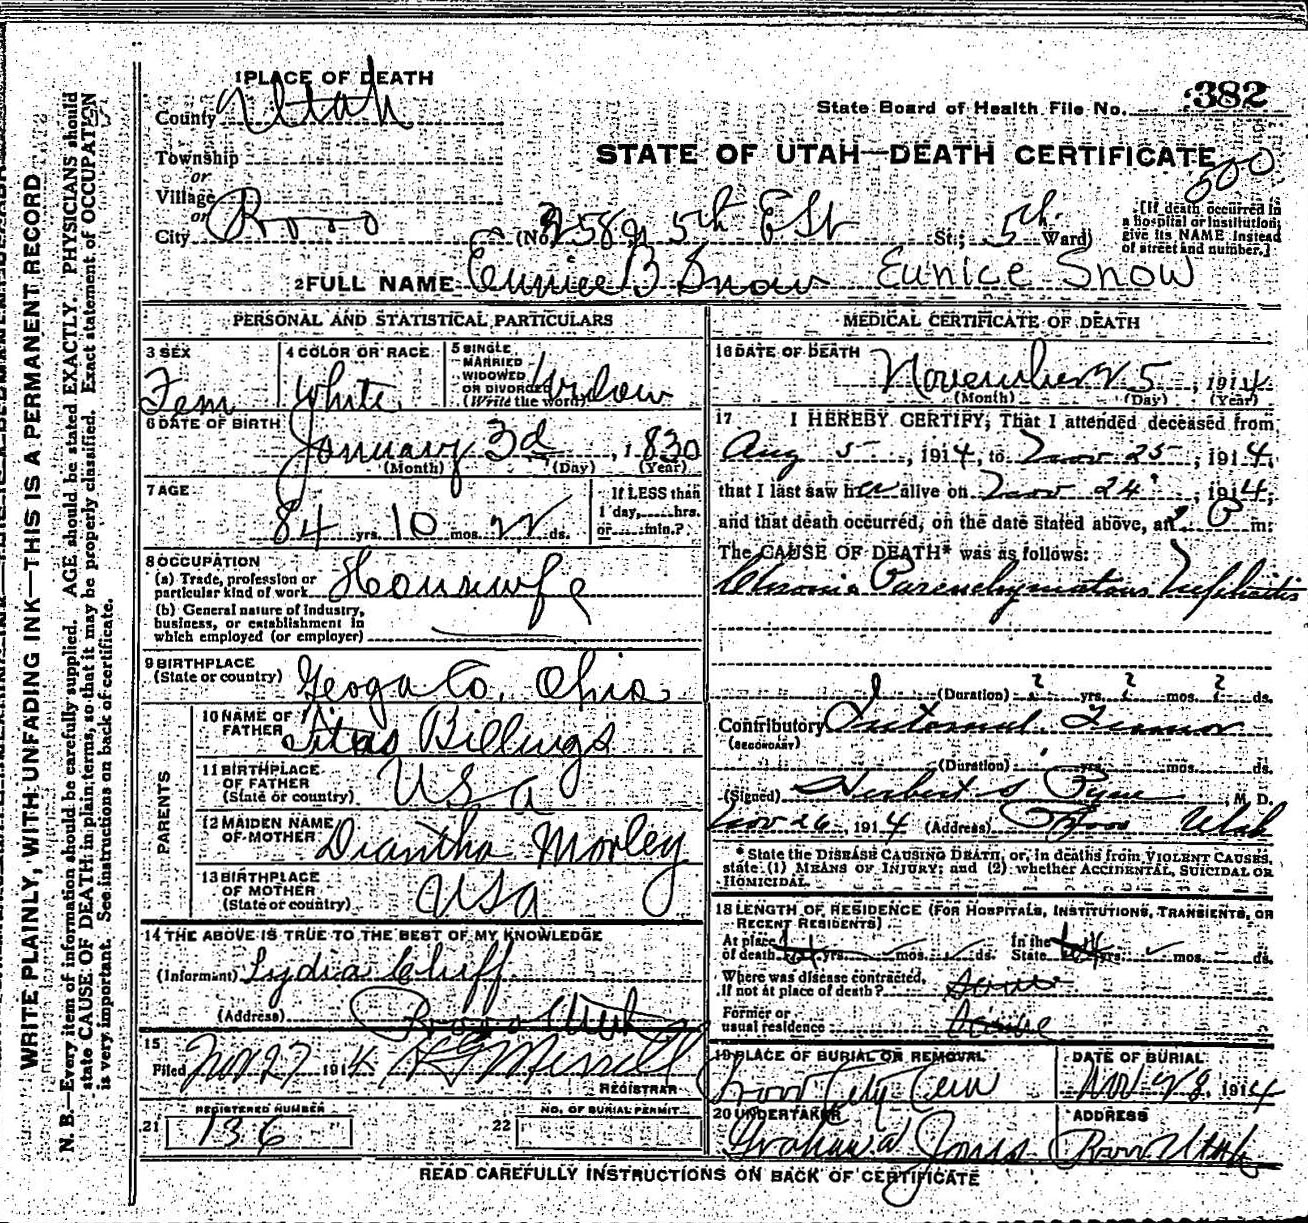 WRITE PLAINLY, WITH UNFADING INK—THIS IS A PERMANENT RECORD
N. B.—Every item of information should be carefully supplied. AGE should be stated EXACTLY. PHYSICIANS should
state CAUSE OF DEATH in plain terms, so that it may be properly classified. Exact statement of OCCUPATION
is very important. See instructions on back of certificate.
1 PLACE OF DEATH
County Utah
State Board of Health File No. 382
Township
or
STATE OF UTAH—DEATH CERTIFICATE
500
Village
or
City Provo (No. 5th E St St.; 5th Ward)
[If death occurred in
a hospital or institution,
give its NAME instead
of street and number.]
2 FULL NAME Eunice B Snow Eunice Snow
PERSONAL AND STATISTICAL PARTICULARS
3 SEX
Fem
4 COLOR OR RACE
White
5 SINGLE
MARRIED
WIDOWED
OR DIVORCED
(Write the word)
Widow
6 DATE OF BIRTH
January 3d, 1830
(Month) (Day) (Year)
7 AGE
84 yrs. 10 mos. 22 ds.
If LESS than
1 day,......hrs.
or......min.?
8 OCCUPATION
(a) Trade, profession or
particular kind of work Housewife
(b) General nature of industry,
business, or establishment in
which employed (or employer)
9 BIRTHPLACE
(State or country) Geoga Co, Ohio
PARENTS
10 NAME OF
FATHER Titas Billings
11 BIRTHPLACE
OF FATHER
(State or country) USA
12 MAIDEN NAME
OF MOTHER Diantha Morley
13 BIRTHPLACE
OF MOTHER
(State or country) USA
14 THE ABOVE IS TRUE TO THE BEST OF MY KNOWLEDGE
(Informant) Lydia Cluff
(Address) Provo Utah
15
Filed Nov 27 1914
REGISTRAR
REGISTERED NUMBER
21 136
NO. OF BURIAL PERMIT
22
MEDICAL CERTIFICATE OF DEATH
16 DATE OF DEATH
November 25, 1914
(Month) (Day) (Year)
17 I HEREBY CERTIFY, That I attended deceased from
Aug 5, 1914, to Nov 25, 1914,
that I last saw her alive on Nov 24, 1914,
and that death occurred, on the date stated above, at P m.
The CAUSE OF DEATH* was as follows:
Chronic Parenchymatous Nephritis
(Duration) ? yrs. ? mos. ? ds.
Contributory Internal Tumor
(SECONDARY)
(Duration) yrs. mos. ds.
(Signed) Herbert S Pyne, M. D.
Nov 26, 1914 (Address) Provo Utah
* State the DISEASE CAUSING DEATH, or, in deaths from VIOLENT CAUSES,
state (1) MEANS OF INJURY; and (2) whether ACCIDENTAL, SUICIDAL OR
HOMICIDAL.
18 LENGTH OF RESIDENCE (FOR HOSPITALS, INSTITUTIONS, TRANSIENTS, OR
RECENT RESIDENTS)
At place
of death yrs. mos. ds.
In the
State yrs. mos. ds.
Where was disease contracted,
If not at place of death?
Former or
usual residence
19 PLACE OF BURIAL OR REMOVAL
Provo City Cem
DATE OF BURIAL
Nov 28, 1914
20 UNDERTAKER
Jones
ADDRESS
Provo Utah
READ CAREFULLY INSTRUCTIONS ON BACK OF CERTIFICATE